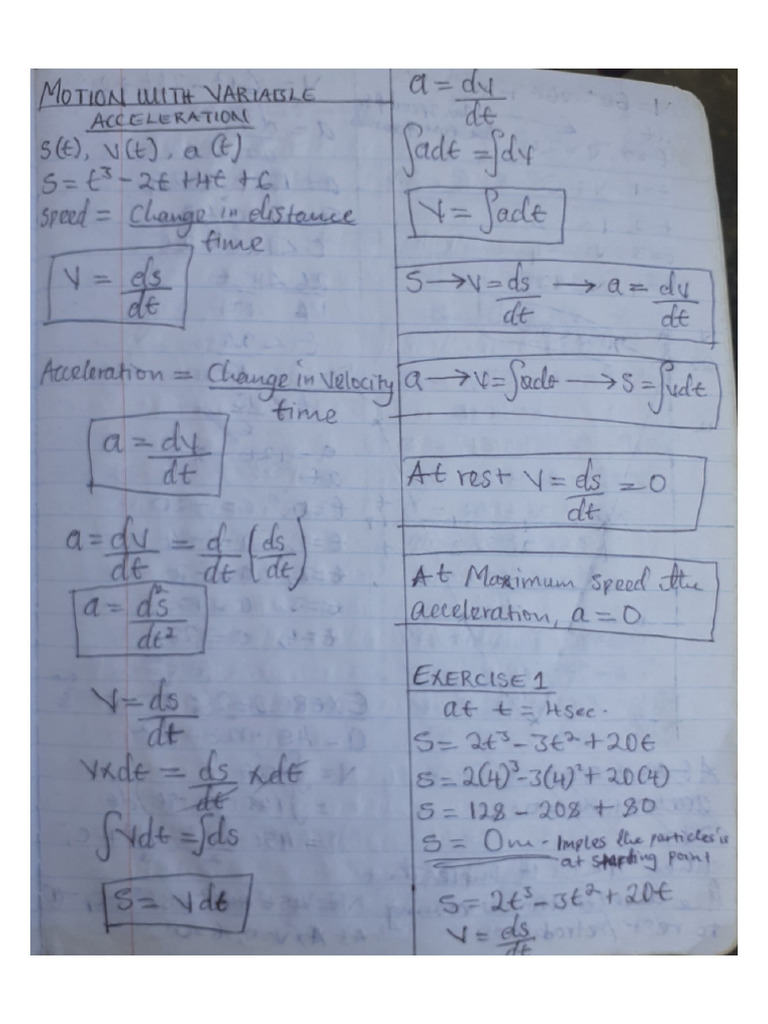 MOTION WITH VARIABLE
ACCELERATION
S(t), V(t), a(t)
S = t³ - 2t + 4t + 6
Speed = Change in distance
time
V = ds
dt
Acceleration = Change in Velocity
time
a = dv
dt
a = dv = d (ds)
dt dt dt
a = d²s
dt²
V = ds
dt
V x dt = ds x dt
dt
∫vdt = ∫ds
S = vdt
a = dv
dt
∫adt = ∫dv
V = ∫adt
S → V = ds → a = dv
dt dt
a → V = ∫adt → S = ∫vdt
At rest V = ds = 0
dt
At Maximum speed the
acceleration, a = 0
EXERCISE 1
at t = 4sec.
S = 2t³ - 3t² + 20t
S = 2(4)³ - 3(4)² + 20(4)
S = 128 - 208 + 80
S = 0m - Imples the particles is
at starting point
S = 2t³ - 3t² + 20t
V = ds
dt